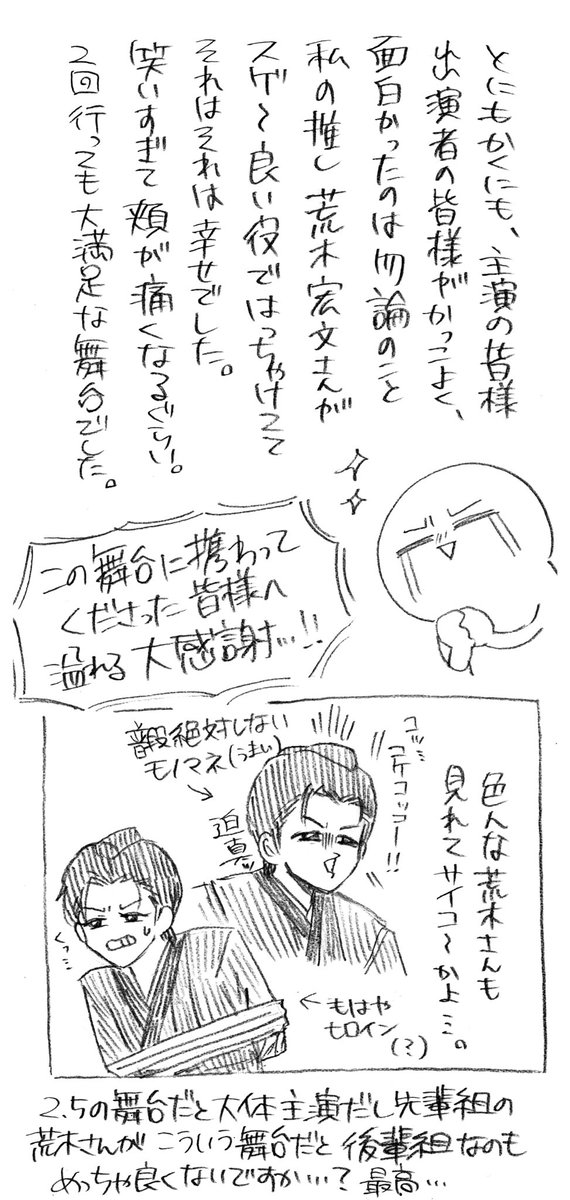 とにもかくにも、主演の皆様
出演者の皆様がかっこよく、
面白かったのは勿論のこと
私の推し荒木宏文さんが
スゲ〜良い役ではっちゃけてて
それはそれは幸せでした。
笑いすぎて頬が痛くなるぐらい。
2回行っても大満足な舞台でした。
この舞台に携わって
くださった皆様へ
溢れる大感謝…!!
色んな荒木さんも
見れてサイコ〜かよ…。
コッ…
コケコッコー!!
普段絶対しない
モノマネ(うまい)
迫真
くっ…
←もはや
ヒロイン
(?)
2.5の舞台だと大体主演だし先輩組の
荒木さんがこういう舞台だと後輩組なのも
めっちゃ良くないですか…?最高…